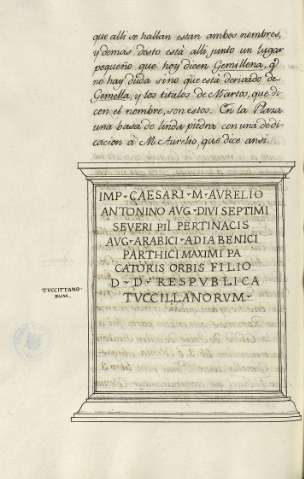 que alli se hallan estan ambos nombres,
y demas desto està alli junto un lugar
pequeño que hoy dicen Gemillena, q̃
no hay duda sino que està derivado de
Gemella, y los titulos de Martos, que di-
cen el nombre, son estos. En la Plaza
una basa de linda piedra con una dedi-
cacion à M. Aurelio, que dice ansi.
IMP · CAESARI · M · AVRELIO
ANTONINO AVG · DIVI SEPTIMI
SEVERI PII PERTINACIS
AVG · ARABICI · ADIABENICI
PARTHICI MAXIMI PA
CATORIS ORBIS FILIO
D · D · RESPVBLICA
TVCCILLANORVM ·
TUCCITTANO-
RUM.